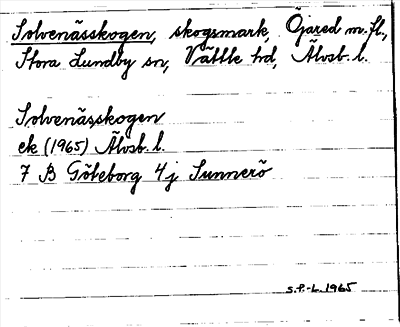 Solvenässkogen, skogsmark, Öjared m.fl.,
Stora Lundby sn, Vättle hd, Älvsb. l.
Solvenässkogen
ek (1965) Älvsb. l.
7 B Göteborg 4j Sunnerö
S.P.-L. 1965